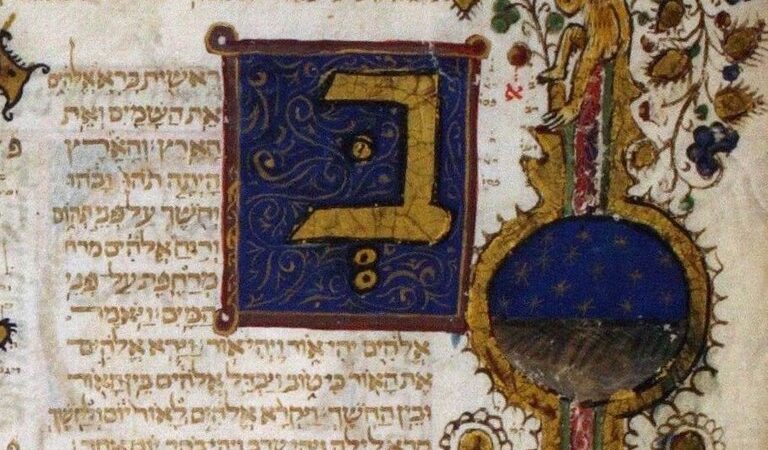 בְּ
ראשית ברא אלהים
את השמים ואת
הארץ והארץ
היתה תהו ובהו
וחשך על פני תהום
ורוח אלהים מרח
מרחפת על פני
המים ויאמר
אלהים יהי אור ויהי אור וירא אלהים
את האור כי טוב ויבדל אלהים בין האור
ובין החשך ויקרא אלהים לאור יום ולחשך
קרא לילה ויהי ערב ויהי בקר
א